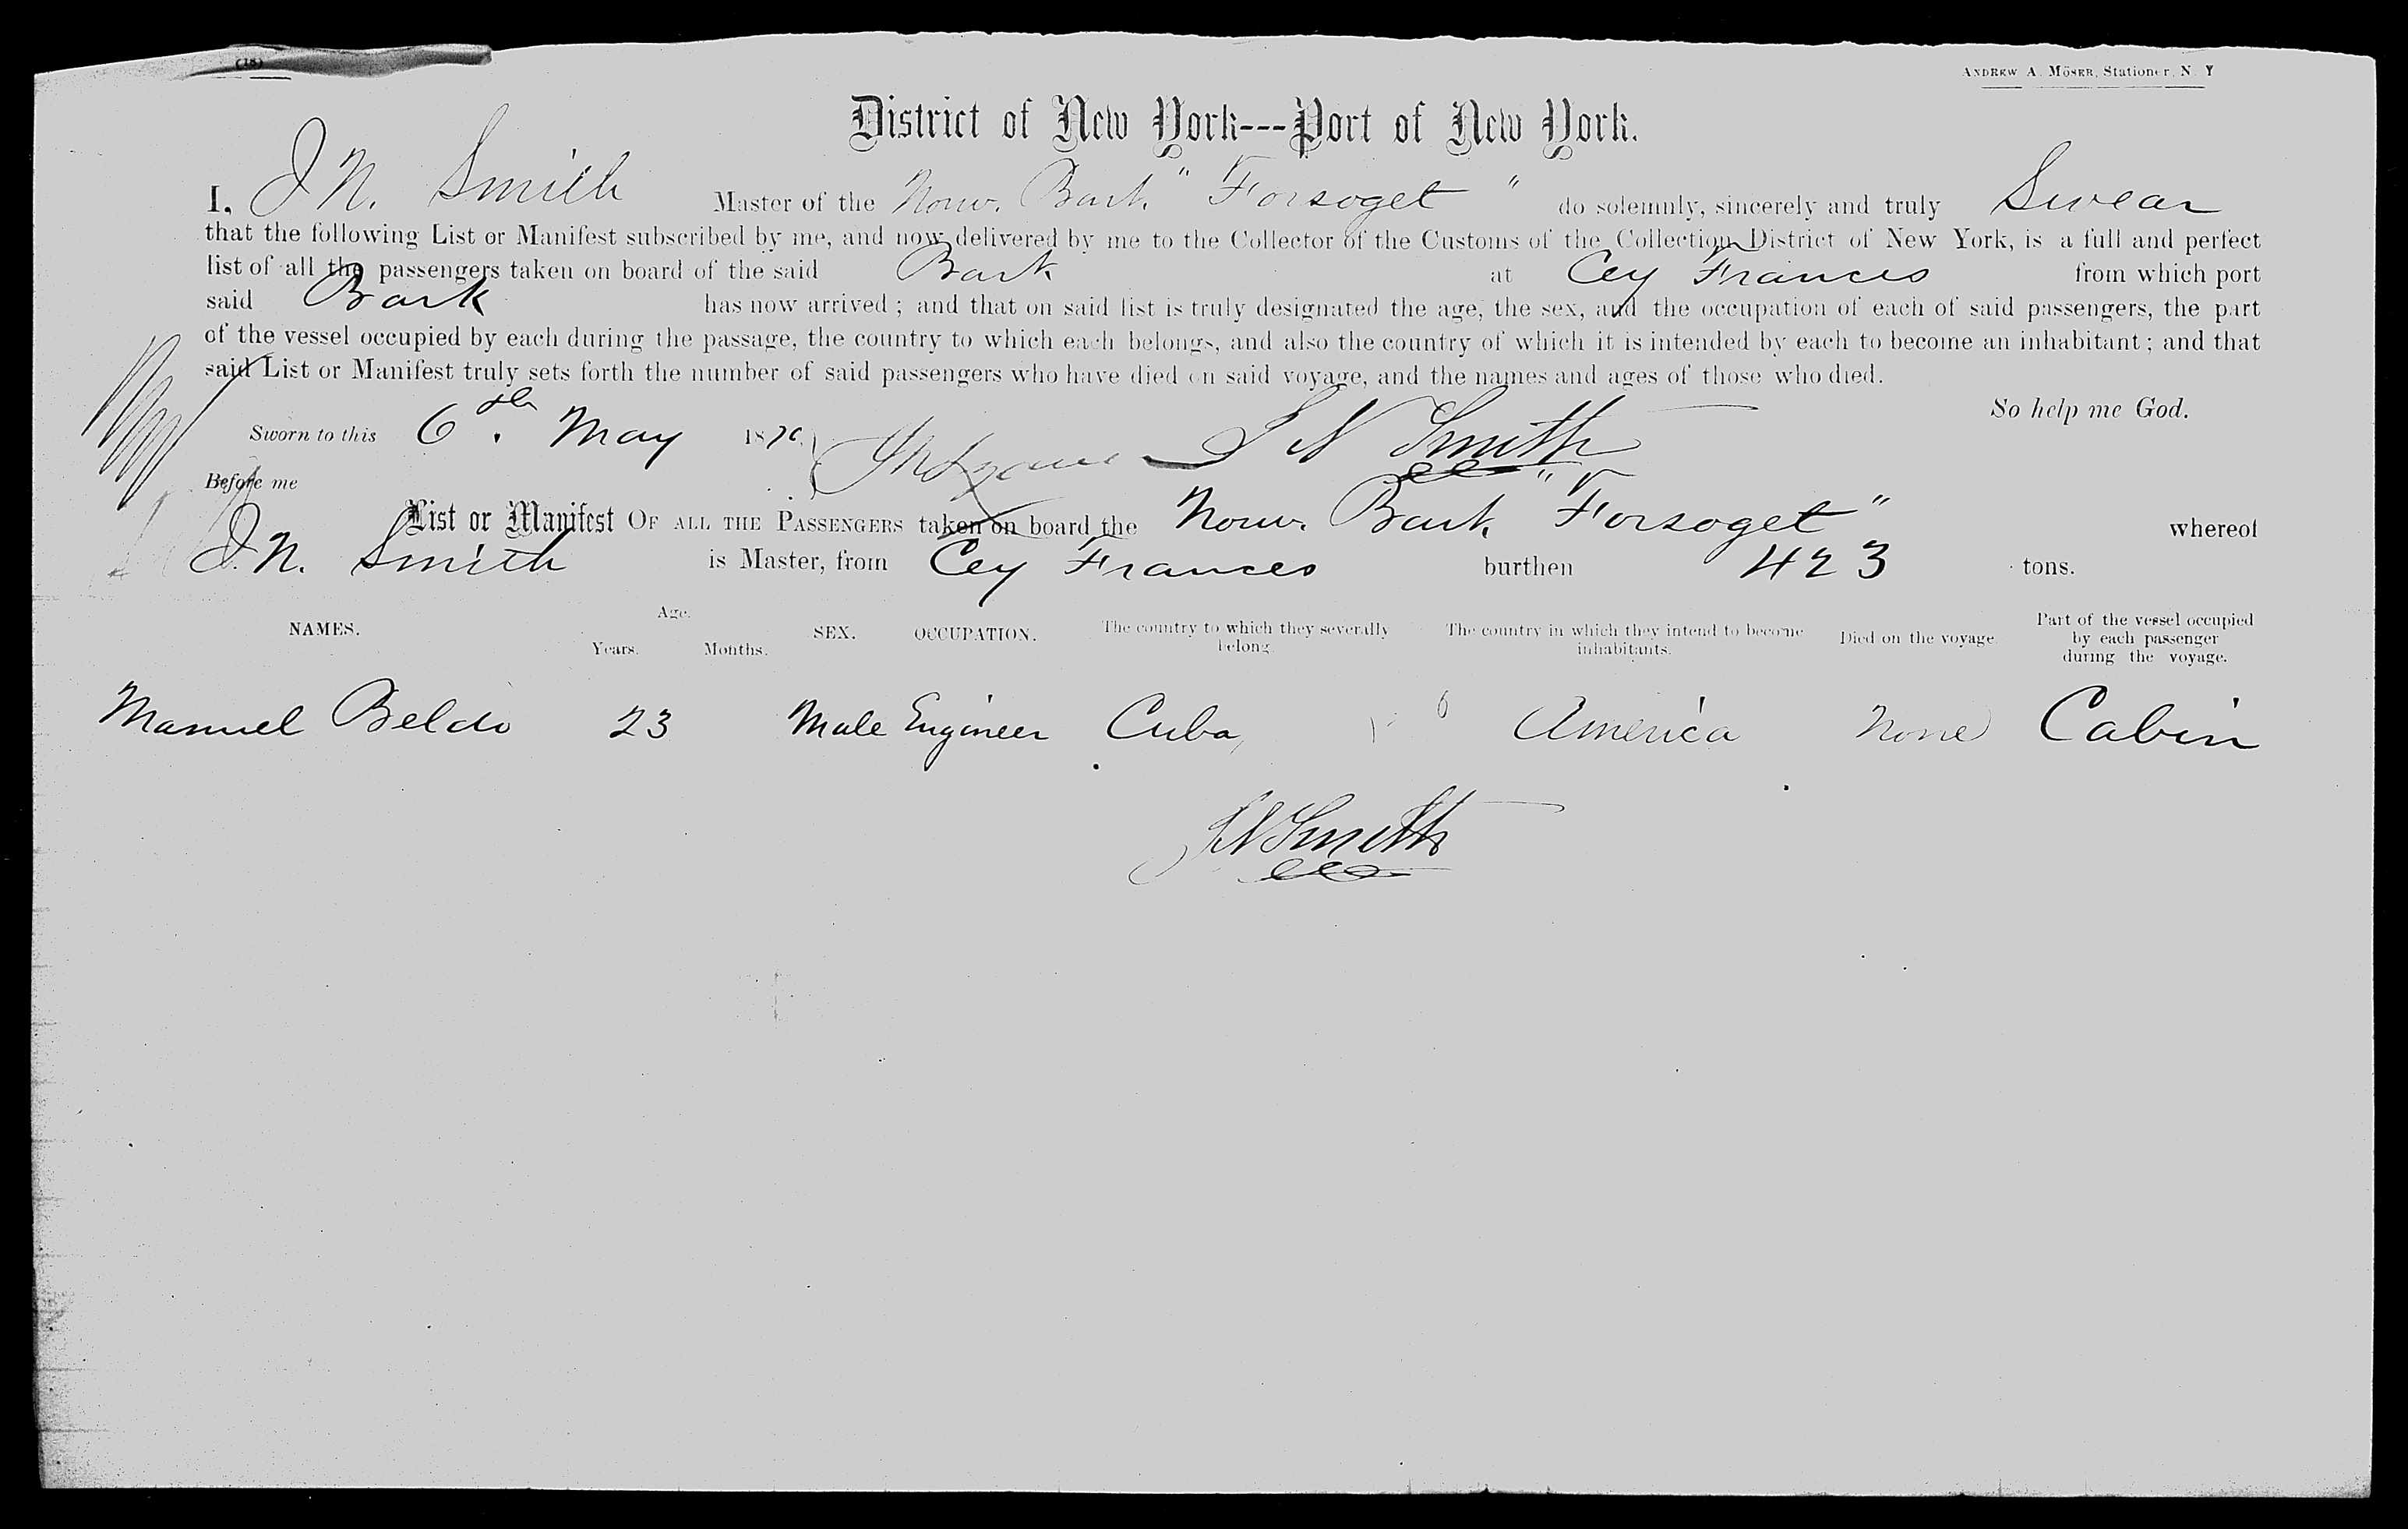 (18)
ANDREW A. MÖSER, Stationer, N. Y
District of New York---Port of New York.
I, J. N. Smith Master of the Norw. Bark "Forsoget" do solemnly, sincerely and truly Swear
that the following List or Manifest subscribed by me, and now delivered by me to the Collector of the Customs of the Collection District of New York, is a full and perfect
list of all the passengers taken on board of the said Bark at Cey Frances from which port
said Bark has now arrived ; and that on said list is truly designated the age, the sex, and the occupation of each of said passengers, the part
of the vessel occupied by each during the passage, the country to which each belongs, and also the country of which it is intended by each to become an inhabitant ; and that
said List or Manifest truly sets forth the number of said passengers who have died on said voyage, and the names and ages of those who died.
So help me God.
Sworn to this 6th. May 187 J N Smith
Before me
List or Manifest OF ALL THE PASSENGERS taken on board the Norw. Bark "Forsoget" whereof
J. N. Smith is Master, from Cey Frances burthen 423 tons.
NAMES. Age. Years. Months. SEX. OCCUPATION. The country to which they severally belong. The country in which they intend to become inhabitants. Died on the voyage. Part of the vessel occupied by each passenger during the voyage.
Manuel Beldo 23 Male Engineer Cuba, America None Cabin
J N Smith